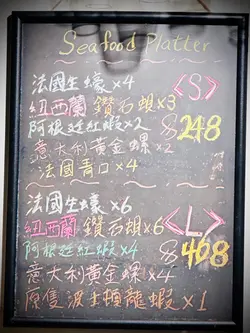 Seafood Platter
法國生蠔×4 <S>
紐西蘭鑽石蜆×3
阿根廷紅蝦×2 $248
意大利黃金螺×2
法國青口×4
法國生蠔×6
紐西蘭鑽石蜆×6 <L>
阿根廷紅蝦×4 $468
意大利黃金螺×4
原隻波士頓龍蝦×1